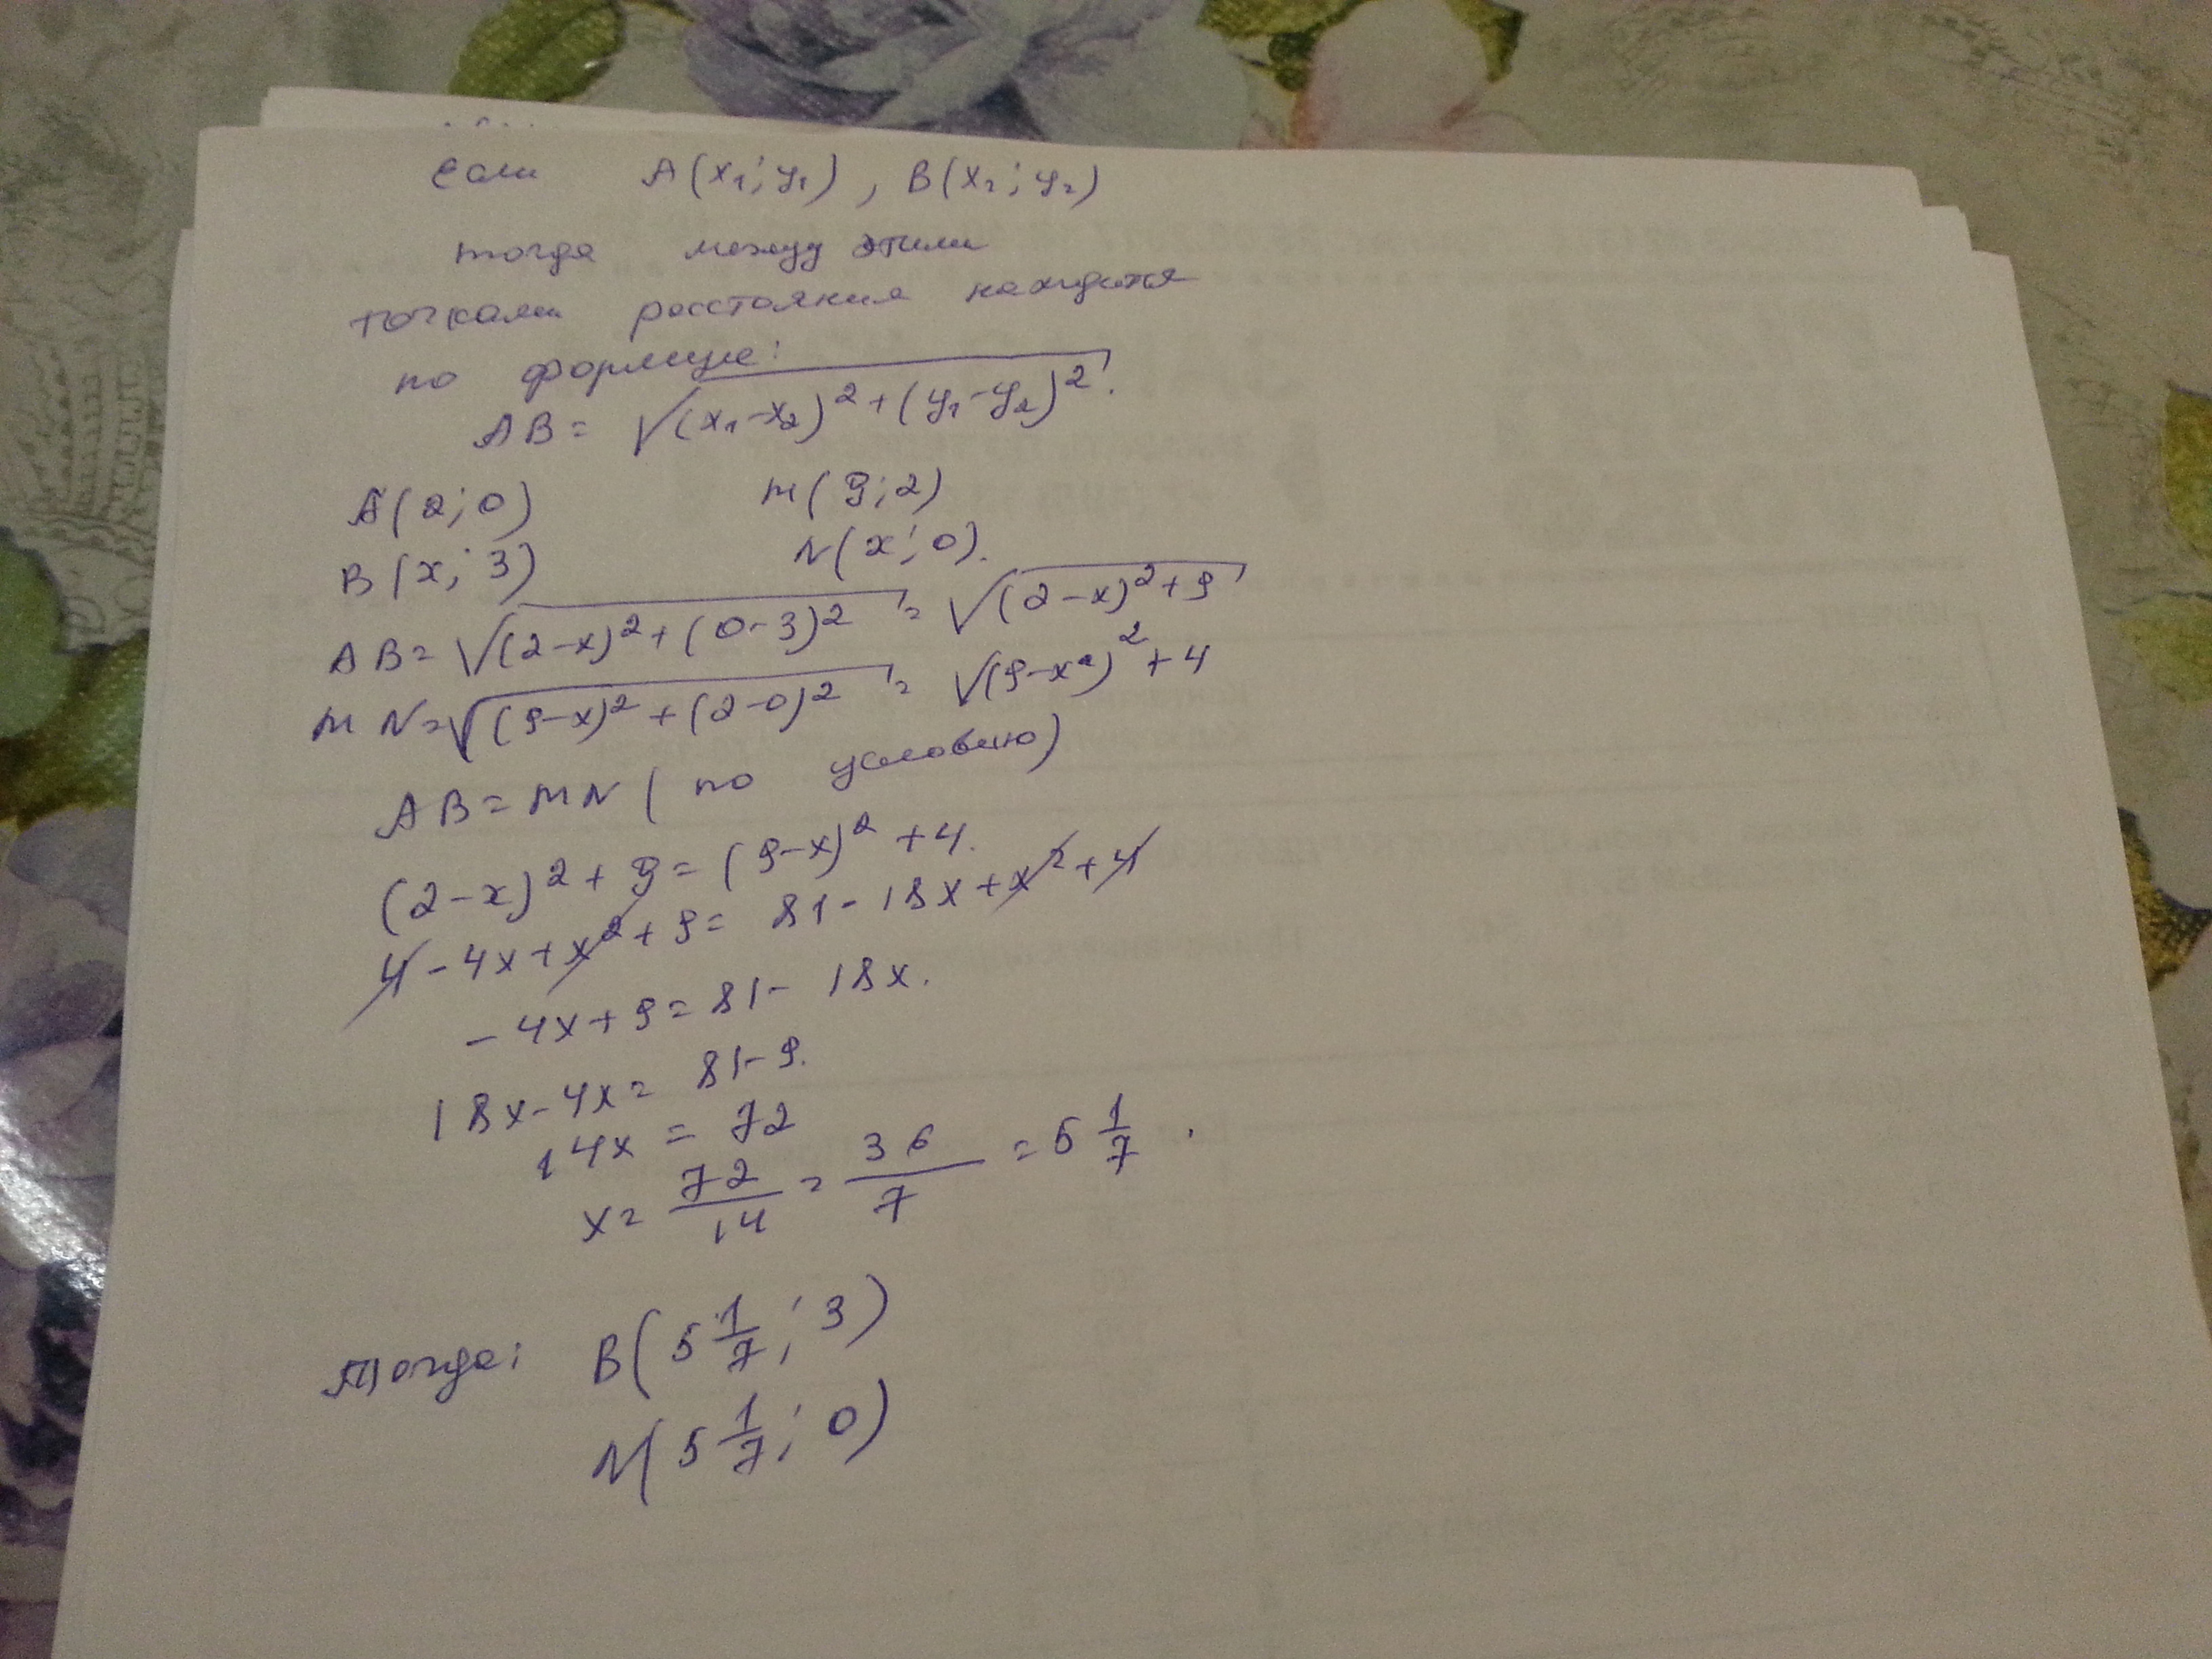 если A(x₁; y₁), B(x₂; y₂)
тогда между этими
точками расстояния находится
по формуле:
AB = √(x₁-x₂)² + (y₁-y₂)².
A(2; 0) M(9; 2)
B(x; 3) N(x; 0).
AB = √(2-x)² + (0-3)² = √(2-x)² + 9
MN = √(9-x)² + (2-0)² = √(9-x)² + 4
AB = MN (по условию)
(2-x)² + 9 = (9-x)² + 4.
4 - 4x + x² + 9 = 81 - 18x + x² + 4
-4x + 9 = 81 - 18x.
18x - 4x = 81 - 9.
14x = 72
x = 72/14 = 36/7 = 5 1/7.
Тогда: B(5 1/7; 3)
N(5 1/7; 0)